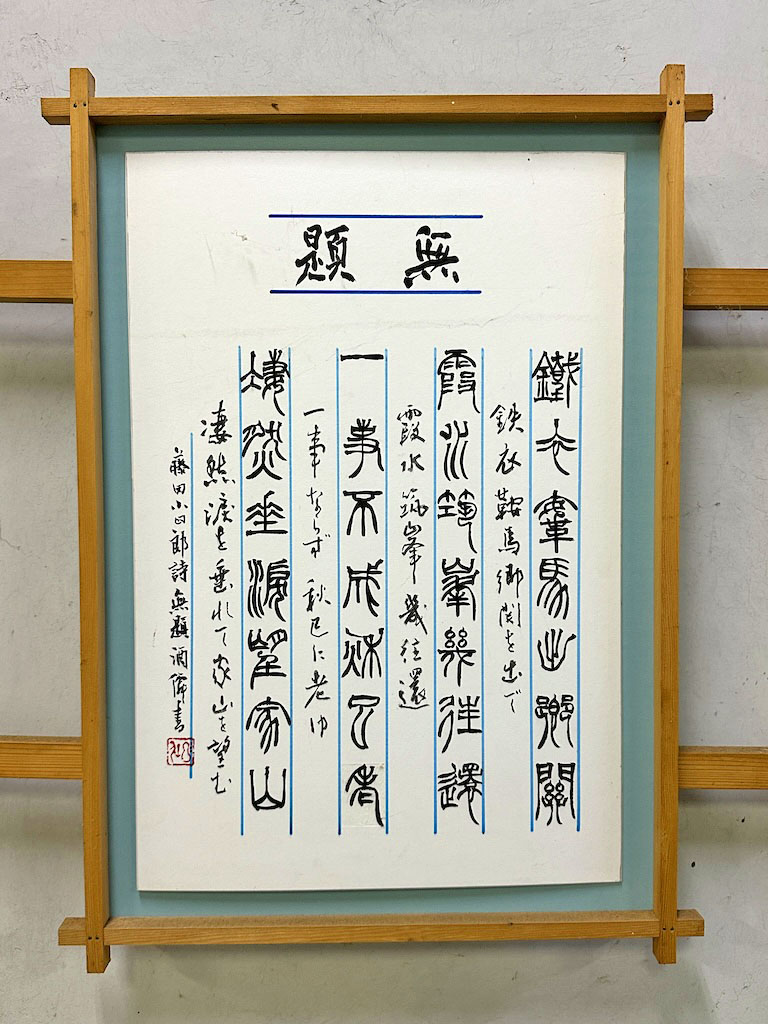 無題
鐵衣鞍馬出鄕關
鉄衣鞍馬郷関を出で
霞水筑峯幾往還
霞水筑峯幾往還
一事不成秋已老
一事ならず秋已に老ゆ
凄然垂涙望家山
凄然涙を垂れて家山を望む
藤田小四郎詩無題 酒俙書